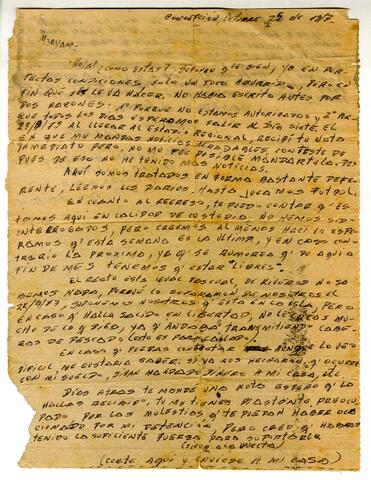 CONCEPCION, OCTUBRE 25 de 1973
MIRYAM:
¡HOLA! ¿COMO ESTAS? SUPONGO Q' BIEN, YO EN PER-
FECTAS CONDICIONES SOLO UN POCO ABURRIDO, PERO EN
FIN QUE SE LE VA HACER, NO HABIA ESCRITO ANTES POR
DOS RAZONES: 1º PORQUE NO ESTAMOS AUTORIZADOS Y 2º POR-
QUE TODOS LOS DIAS ESPERAMOS SALIR. EL DIA SIETE, EL
AL LLEGAR AL ESTADIO REGIONAL, RECIBI TU NOTA
EN QUE ME MANDAS NOTICIAS AGRADABLES CONTESTE DE
INMEDIATO PERO, NO ME FUE POSIBLE MANDARTELA. DES
PUES DE ESO NO HE TENIDO MAS NOTICIAS.
AQUI SOMOS TRATADOS EN FORMA BASTANTE DEFE-
RENTE, LEEMOS LOS DIARIOS, HASTA JUGAMOS FUTBOL,
EN CUANTO AL REGRESO, TE PUEDO CONTAR Q' ES-
TAMOS AQUI EN CALIDAD DE CUSTODIA. NO HEMOS SIDO
INTERROGADOS, PERO CREEMOS AL MENOS HACI LO ESPE-
RAMOS Q' ESTA SEMANA ES LA ULTIMA, Y EN CASO CON-
TRARIO LA PROXIMA, YA Q' SE RUMOREA Q' DE AQUI A
FIN DE MES TENEMOS Q' ESTAR "LIBRES".
EL RESTO ESTA IGUAL, DE RIVEROS NO SA
BEMOS NADA, PORQUE LO SEPARARON DE NOSOTROS EL
SUPONEMOS NOSOTROS Q' ESTA EN LA ISLA, PERO
EN CASO Q' HALLA SALIDO EN LIBERTAD, NO LE CREAS MU-
CHO DE LO Q' DIGA, YA Q' ANDABA TRANSMITIENDO CABE-
ZAS DE PESCADO
EN CASO Q' PUEDAS CONTESTAR AUNQUE LO VEO
DIFICIL, ME GUSTARIA SABER: SI YA NOS HECHARON, Q' OCURRE
CON MI SUELDO, SI HAN MANDADO DINERO A MI CASA, ETC.
DIAS ATRAS TE MANDE UNA NOTA ESPERO Q' LA
HALLAS RECIBIDO, TU ME TIENES BASTANTE PREOCU-
PADO POR LAS MOLESTIAS Q' TE PUEDAN HABER OCA-
CIONADO POR MI DETENCION, PERO CREO Q' HABRAS
TENIDO LA SUFICIENTE FUERZA PARA SOPORTARLA
(SIGUE A LA VUELTA)
(CORTE AQUI Y ENVIESE A MI CASA)